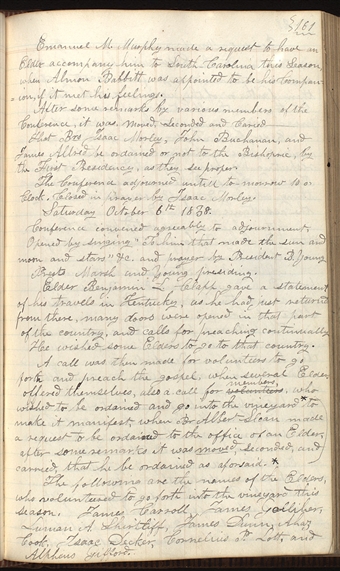 181
Emanuel M. Murphy made a request to have an
Elder accompany him to South Carolina this season
when Almon Babbitt was appointed to be his compan-
=ion, if it met his feelings.
After some remarks by various members of the
Conference, it was moved, seconded and Caried
that Bro Isaac Morley, John Buchanan, and
James Allred be ordained or not to the Bishopric, by
the First Presidency, as they see proper.
The Conference adjourned untill to morrow 10 o
clock. Closed in prayer by Isaac Morley.
Saturday October 6th 1838.
Conference convened agreeably to adjournment.
Opened by singing "To him that made the sun and
moon and stars" &c. and prayer by President B. Young
Prests Marsh and Young presiding.
Elder Benjamin L Clapp gave a statement
of his travels in Kentucky, as he had just returned
from there, many doors were opened in that part
of the country, and calls for preaching continually
Hee wished some Elders to go to that country.
A call was then made for volunteers to go
forth and preach the gospel, when several Elders
offered themselves, also a call for volunteers members, who
wished to be ordained and go into the vineyard *to
make it manifest, when Br Albert Sloan made
a request to be ordained to the office of an Elder,
after some remarks it was moved, seconded, and
carried, that he be ordained as aforsaid. *
The following are the names of the Elders,
who volunteered to go forth into the vineyard this
season. James Carroll, James Galliher,
Luman A Shurtliff, James Dunn, Ahaz
Cook, Isaac Decker, Cornelius P. Lott, and
Alpheus Gifford.